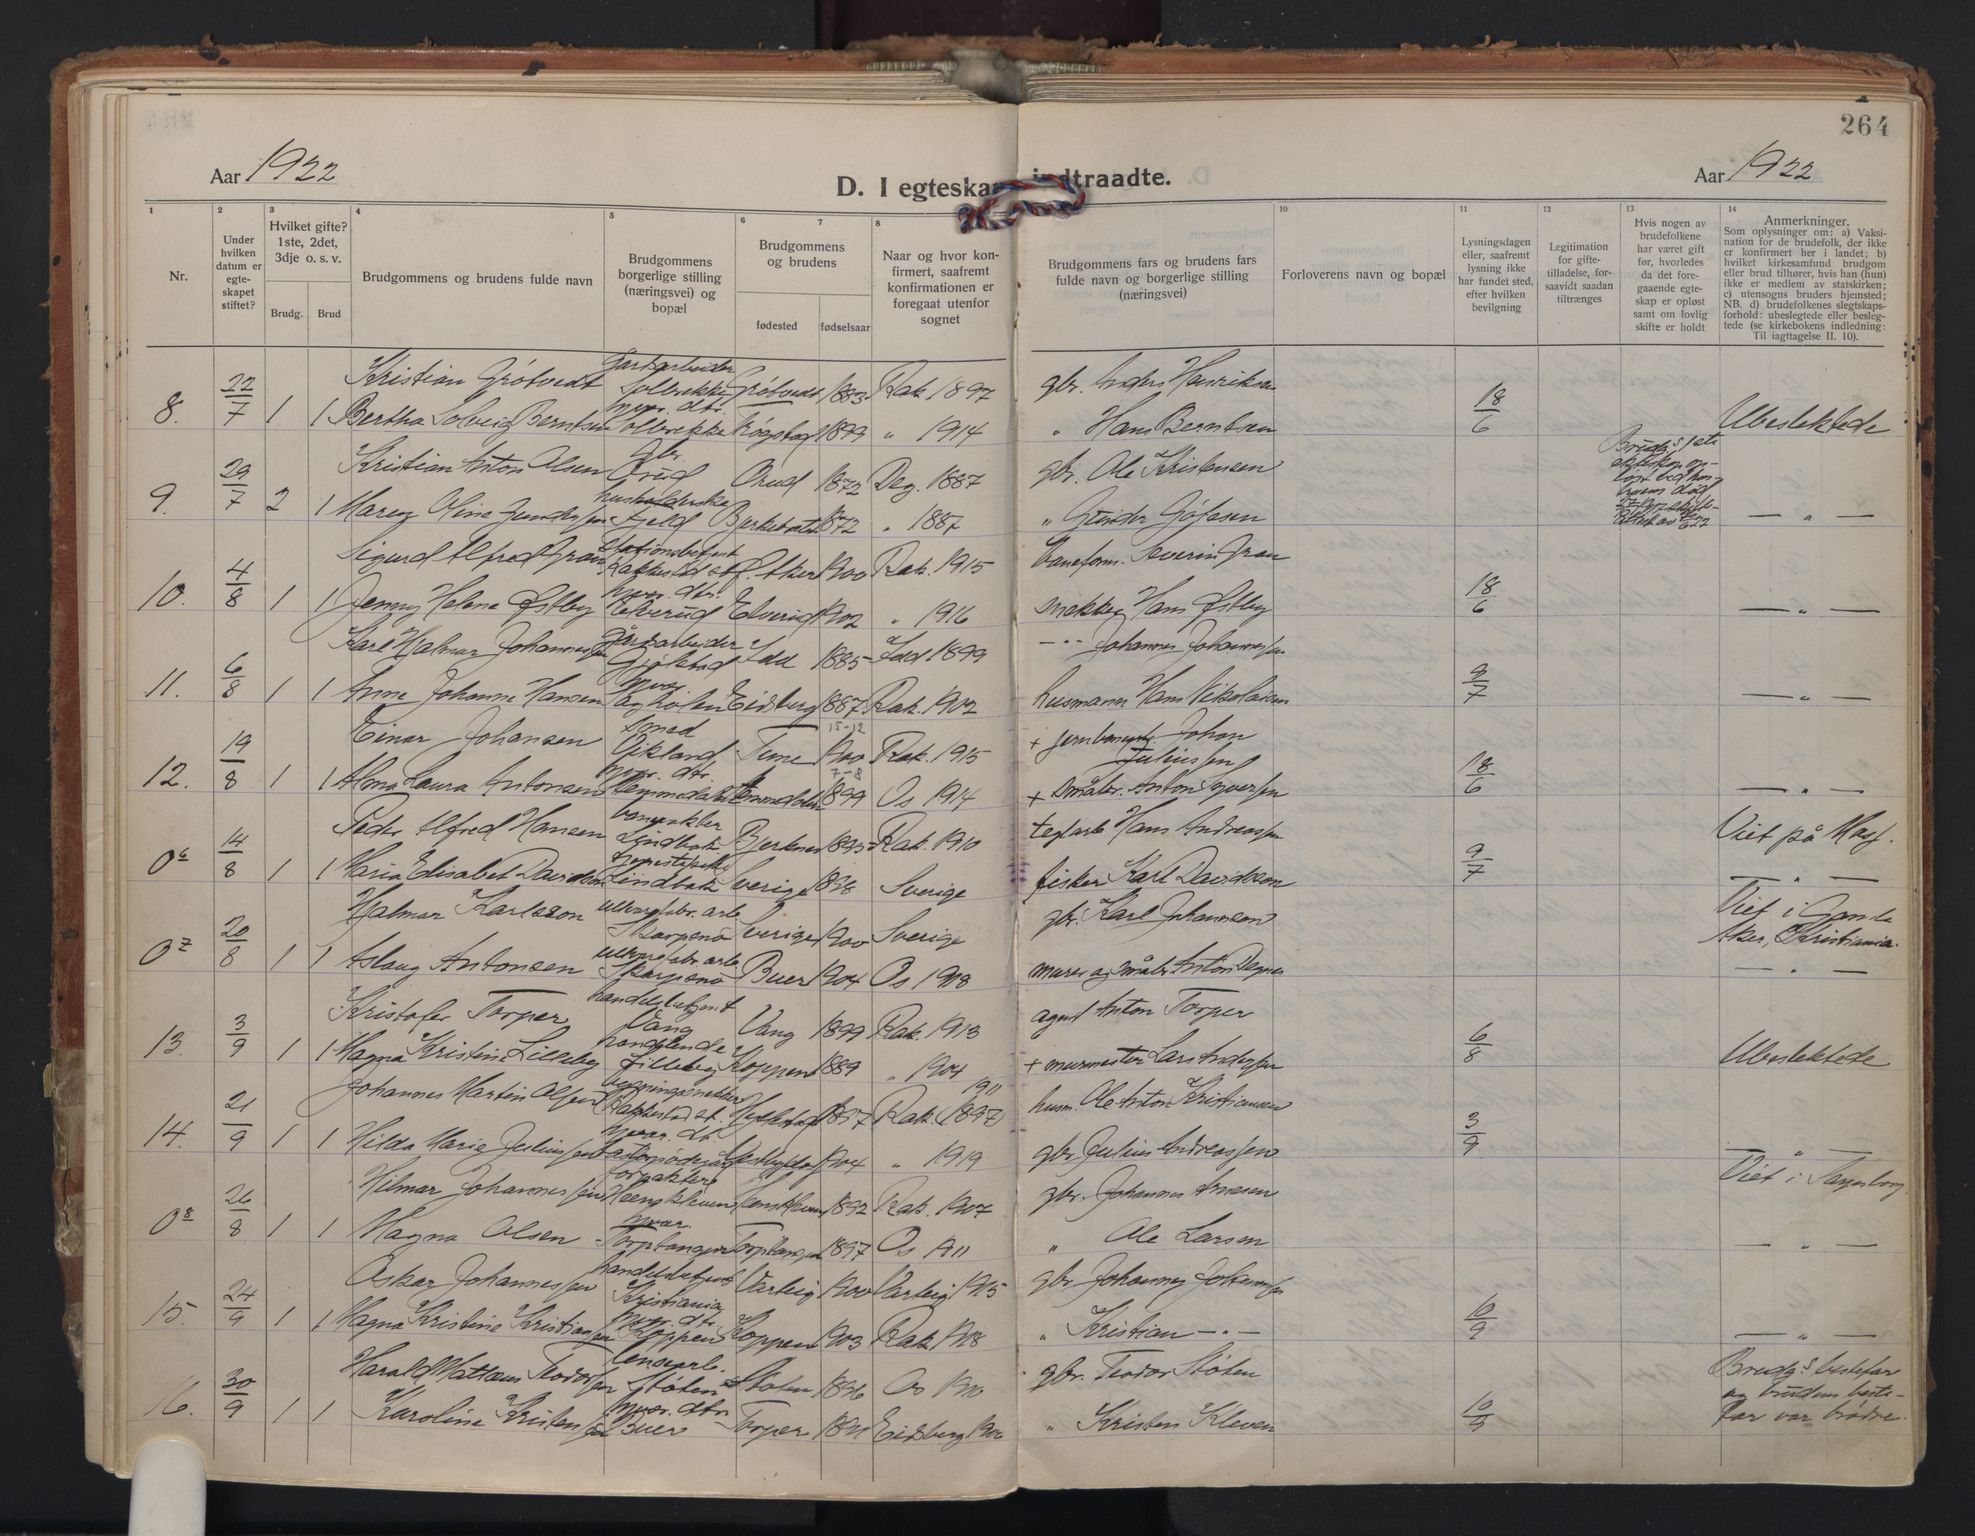 264
Aar 1922
D. I egteskap indtraadte.
Aar 1922
1 2 3 4 5 6 7 8 10 11 12 13 14
Nr.
Under hvilken datum er egteskapet stiftet?
Hvilket gifte? 1ste, 2det, 3dje o. s. v.
Brudg. Brud
Brudgommens og brudens fulde navn
Brudgommens borgerlige stilling (næringsvei) og bopæl
Brudgommens og brudens
fødested fødselsaar
Naar og hvor konfirmert, saafremt konfirmationen er foregaat utenfor sognet
Brudgommens fars og brudens fars fulde navn og borgerlige stilling (næringsvei)
Forloverens navn og bopæl
Lysningsdagen eller, saafremt lysning ikke har fundet sted, efter hvilken bevilgning
Legitimation for giftetilladelse, forsaavidt saadan tiltrænges
Hvis nogen av brudefolkene har været gift før, hvorledes da det foregaaende egteskap er opløst samt om lovlig skifte er holdt
Anmerkninger.
Som oplysninger om: a) Vaksination for de brudefolk, der ikke er konfirmert her i landet; b) hvilket kirkesamfund brudgom eller brud tilhører, hvis han (hun) ikke er medlem av statskirken; c) utensogns bruders hjemsted; NB. d) brudefolkenes slegtskapsforhold: ubeslegtede eller beslegtede (se kirkebokens indledning: Til iagttagelse II. 10).
8. 22/7 1 Kristian Grötvedt gardsarbeider Solbrekke Grötvedt 1883 Rak. 1897 gbr. Anders Henriksen 18/6
1 Bertha Solveig Berntsen hvor. dtr. Solbrekke Trøgstad 1899 " 1914 " Hans Berntsen Ubeslektede
9. 29/7 2 Kristian Anton Olsen gbr. Orud Orud 1872 Deg. 1887 gbr. Ole Kristensen
1 Maren Oline Gundersen husholderske Fjeld 1872 " 1887 " Gunder — " —
10. 4/8 1 Sigurd Alfred Gran stationsbetjent Rakkestad st. Aker 1900 Rak. 1915 baneform. Severin Gran 18/6
1 Jenny Helene Østby hvor. dtr. Elverud 1902 " 1916 snekker Hans Østby — " —
11. 6/8 1 Karl Hjalmar Johannessen gårdsarbeider Gjølstad Idd 1885 Idd 1899 — " — Johannes Johannessen 9/7
1 Anne Johanne Hansen Eidsberg 1887 Rak. 1902 husmann Hans Nikolaisen — " —
12. 19/8 1 Einar Johansen smed Vikland Tune 15-12 1900 Rak. 1915 + Johan Juliussen 18/6
1 Alma Laura Antonsen hvor. dtr. 7-8 1899 Os 1914 + småbr. Anton Syversen — " —
0⁶ 14/8 1 Peder Alfred Hansen banevakter Lindbak 1895 Rak. 1910 teglarb. Hans Andreassen 9/7 Viet på Mosj.
1 Maria Elisabet Davidson tjenestepike Lindbak Sverige 1898 Sverige fisker Karl Davidsson — " —
0⁷ 20/8 1 Hjalmar Karlsson ullvarefabr. arb. Skarpsno Sverige 1900 Sverige gbr. Karl Johansson Viet i Gamle Aker, Kristiania.
1 Aslaug Antonsen ullvarefabr. arb. Skarpsno Buer 1904 Os 1918 murer og småbr. Anton — " —
13. 3/9 1 Kristofer Torper handelsbetjent Vang Vang 1899 Rak. 1913 agent Anton Torper 6/8
1 Magna Kristine Lilleby handlende Lilleby Koppen 1889 " 1904 + murmester Lars Andersen Ubeslektede
14. 21/9 1 Johannes Martin Olsen bygningssnekker Rakkestad st. 1897 Rak. 1911 (1897) husm. Ole Anton Kristiansen 3/9
1 Hilda Marie Juliussen hvor. dt. 1904 " 1919 gbr. Julius Andreassen — " —
0⁸ 26/8 1 Hilmar Johannessen forpakter 1892 Rak. 1907 gbr. Johannes Arnesen Viet i Sarpsborg.
1 Magna Olsen hvor. Torptangen Torptangen 1897 Os 1911 " Ole Larsen — " —
15. 24/9 1 Oskar Johannessen handelsbetjent Kristiania Varteig 1900 Varteig 1915 gbr. Johannes Johannessen 10/9
1 Magna Kristine Kristiansen hvor. dtr. Koppen Koppen 1903 Rak. 1918 " Kristian — " — — " —
16. 30/9 1 Harald Mattæus Teodorsen lensearb. Støten Støten 1896 Os 1910 gbr. Teodor Støten 10/9 Brudg.s bestefar og brudens bestefar var brødre.
1 Karoline Kristensen hvor. dtr. Buer Torper 1891 Eidsberg 1906 " Kristen Kleven